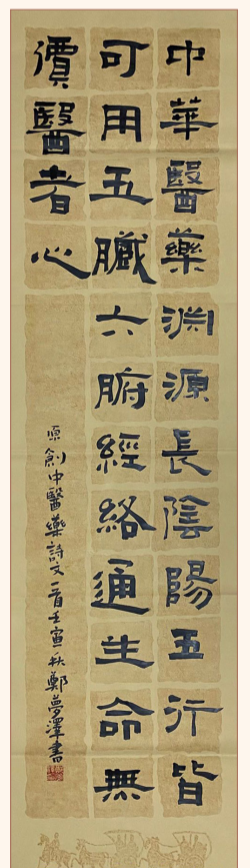 中華醫藥淵源長陰陽五行皆
可用五臟六腑經絡通生命無
價醫者心
原創中醫藥詩文一首壬寅秋鄭夢澤書